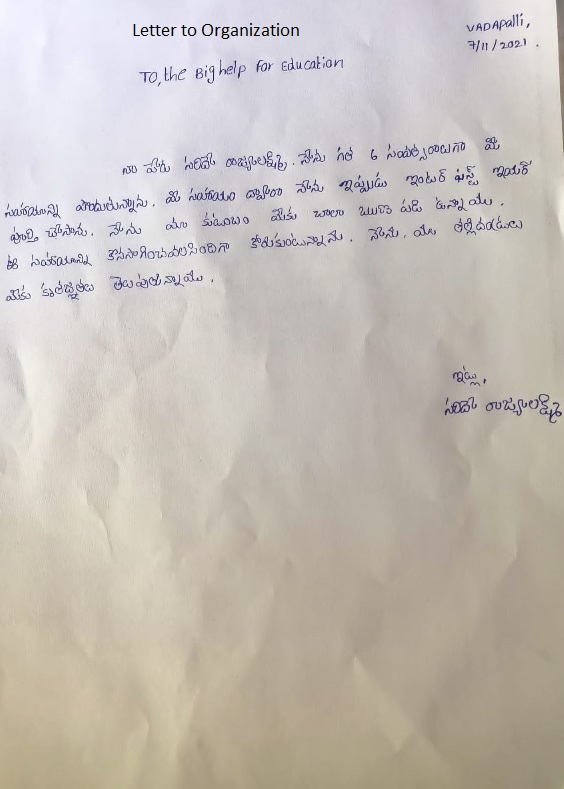 Letter to Organization
VADAPalli,
7/11/2021.
TO, the Big help For Education
నా పేరు సరిదే రాజ్యలక్ష్మి. నేను గత 6 సంవత్సరాలుగా మీ
సహాయాన్ని పొందుతున్నాను. మీ సహాయం ద్వారా నేను ఇప్పుడు ఇంటర్ ఫస్ట్ ఇయర్
పూర్తి చేసాను. నేను మా కుటుంబం మీకు చాలా ఋణ పడి ఉన్నాము.
ఈ సహాయాన్ని కొనసాగించవలసిందిగా కోరుకుంటున్నాను. నేను, మా తల్లిదండ్రులు
మీకు కృతజ్ఞతలు తెలుపుతున్నాము.
ఇట్లు,
సరిదే రాజ్యలక్ష్మి